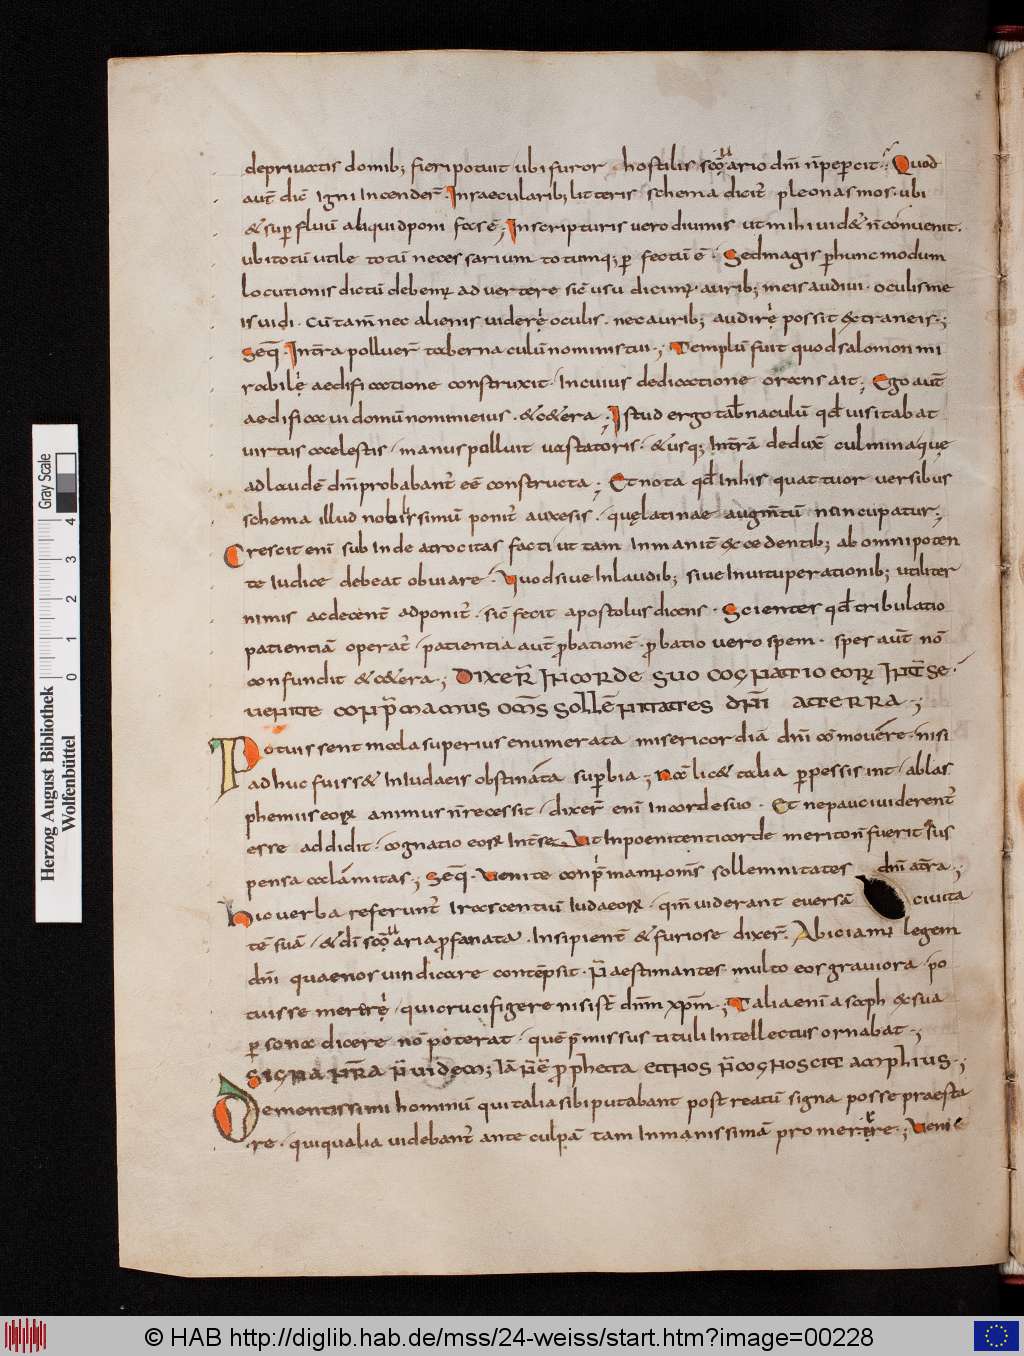 depriuatis domib; fieri potuit ubi furor hostilis scōuario dn̄i n̄ pepercit. Quod
aut̄ dic̄ igni incender̄. In saecularib; litteris schema dicit̄ pleonasmos. ubi
& superfluū aliquid poni fas ē; In scripturis uero diuinis ut mihi uid& n̄ conuenit.
ubi totū utile totū necessarium totumq; perfectū ē. Sed magis p hunc modum
locutionis dictū debem; aduertere sic̄ usu dicim;. aurib; meis audiui. oculis me
is uidi. cū tam̄ nec alienis uiderę oculis. nec aurib; audirę possit extraneis;
Seq̄. In t̄ra polluer̄ tabernaculū nominis tui; Templū fuit quod salomon mi
rabilę aedificatione construxit. In cuius dedicatione orans ait; Ego aut̄
aedificaui domū nomini eius. & c&era; Istud ergo tab̄naculū qd̄ uisitabat
uirtus caelestis, manus polluit uastatoris. & usq; In t̄rā dedux̄ culmina quę
ad laudē dn̄i probabant̄ eē constructa; Et nota qd̄ In his quattuor uersibus
schema illud nobilissimū ponit̄ auxesis. quę latinae augm̄tū nuncupatur;
Crescit eni sub Inde atrocitas facti ut tam Inmanit̄ excedentib; ab omnipoten
te Iudice debeat obuiare. Quod siue In laudib; siue In uituperationib; utiliter
nimis ac decent̄ adponit̄. sic̄ fecit apostolus dicens. Scientes qd̄ tribulatio
patientiā operat̄, patientia aut̄ probationē. probatio uero spem. spes aut̄ nō
confundit & c&era; DIXER̄ IN CORDE SUO COGNATIO EOR; INTER SE.
UENITE CONPRIMAMUS OMS SOLLĒNITATES DN̄I A TERRA;
Potuissent mala superius enumerata misericordiā dn̄i cōmouere. nisi
adhuc fuiss& In Iudaeis obstinata superbia; Nā lic& talia perpessi sint, ablas
phemiis eor; animus n̄ recessit, dixer̄ eni In corde suo. Et ne pauci uiderent̄
esse addidit, cognatio eor; Int̄ se. Ut In poenitenti corde merito n̄ fuerit sus
pensa calamitas; Seq̄. Uenite conprimam; oms sollemnitates dn̄i a t̄ra;
Hic uerba referunt̄ Irascentiū Iudaeor;, qm̄ uiderant euersā ciuita
tē suā, & di scōuaria profanata. Insipient̄ & furiose dixer̄. Abiciam; legem
dn̄i quae nos uindicare contēpsit. p̄ aestimantes multo eos grauiora, po
tuisse mererę, qui crucifigere nisi st̄ dn̄m xp̄m; Talia eni asaph ex sua
persona dicere nō poterat, quē p̄missus tituli Intellectus ornabat;
SIGNA NR̄A N̄ UIDEM; IĀ N̄ Ē PROPHETA ET NOS N̄ COGNOSCIT AMPLIUS;
Dementissimi hominū qui talia sibi putabant post reatū signa posse praesta
re. qui qualia uidebant̄ ante culpā tam Inmanissimā promerere; Ueni
Herzog August Bibliothek
Wolfenbüttel
0 1 2 3 4
Gray Scale
© HAB http://diglib.hab.de/mss/24-weiss/start.htm?image=00228